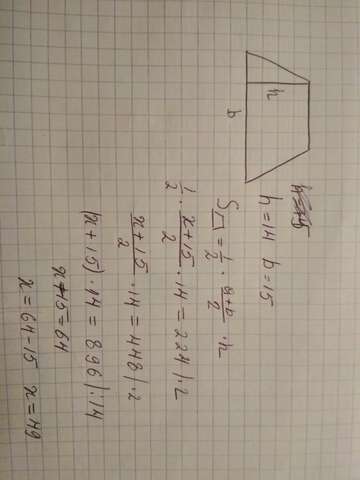 h
b
h=14 b=15
S = 1/2 · (a+b)/2 · h
1/2 · (x+15)/2 · 14 = 224 | · 2
(x+15)/2 · 14 = 448 | · 2
(x+15) · 14 = 896 | : 14
x+15 = 64
x = 64-15 x = 49